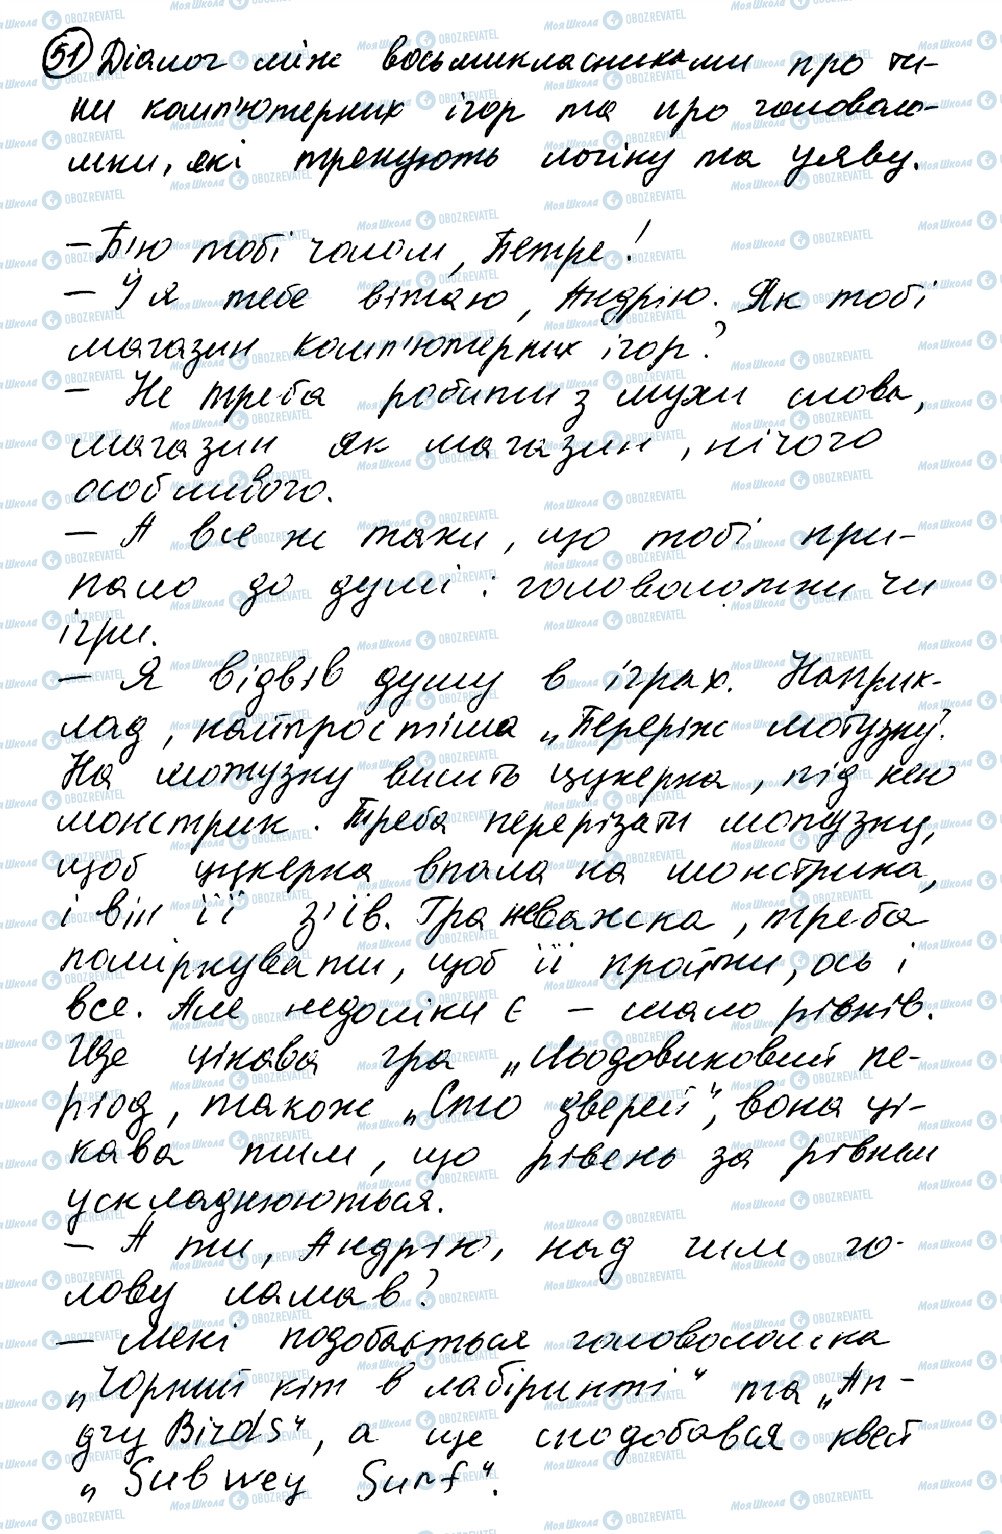 51 Діалог між восьмикласниками про ти-
пи комп'ютерних ігор та про головоло-
мки, які тренують логіку та уяву.
– Б'ю тобі чолом, Петре!
– Й я тебе вітаю, Андрію. Як тобі
магазин комп'ютерних ігор?
– Не треба робити з мухи слова,
магазин як магазин, нічого
особливого.
– А все ж таки, що тобі при-
пало до душі: головоломки чи
ігри.
– Я відвів душу в іграх. Наприк-
лад, найпростіша „Переріж мотузку".
На мотузку висить цукерка, під нею
монстрик. Треба перерізати мотузку,
щоб цукерка впала на монстрика,
і він її з'їв. Гра неважка, треба
поміркувати, щоб її пройти, ось і
все. Але недоліки є – мало рівнів.
Ще цікава гра „Льодовиковий пе-
ріод, також „Сто дверей", вона ці-
кава тим, що рівень за рівнем
ускладнюються.
– А ти, Андрію, над чим го-
лову ламав?
– Мені подобається головоломка
„Чорний кіт в лабіринті" та „Ан-
дгу Birds", а ще сподобався квест
„Subwey Surf".